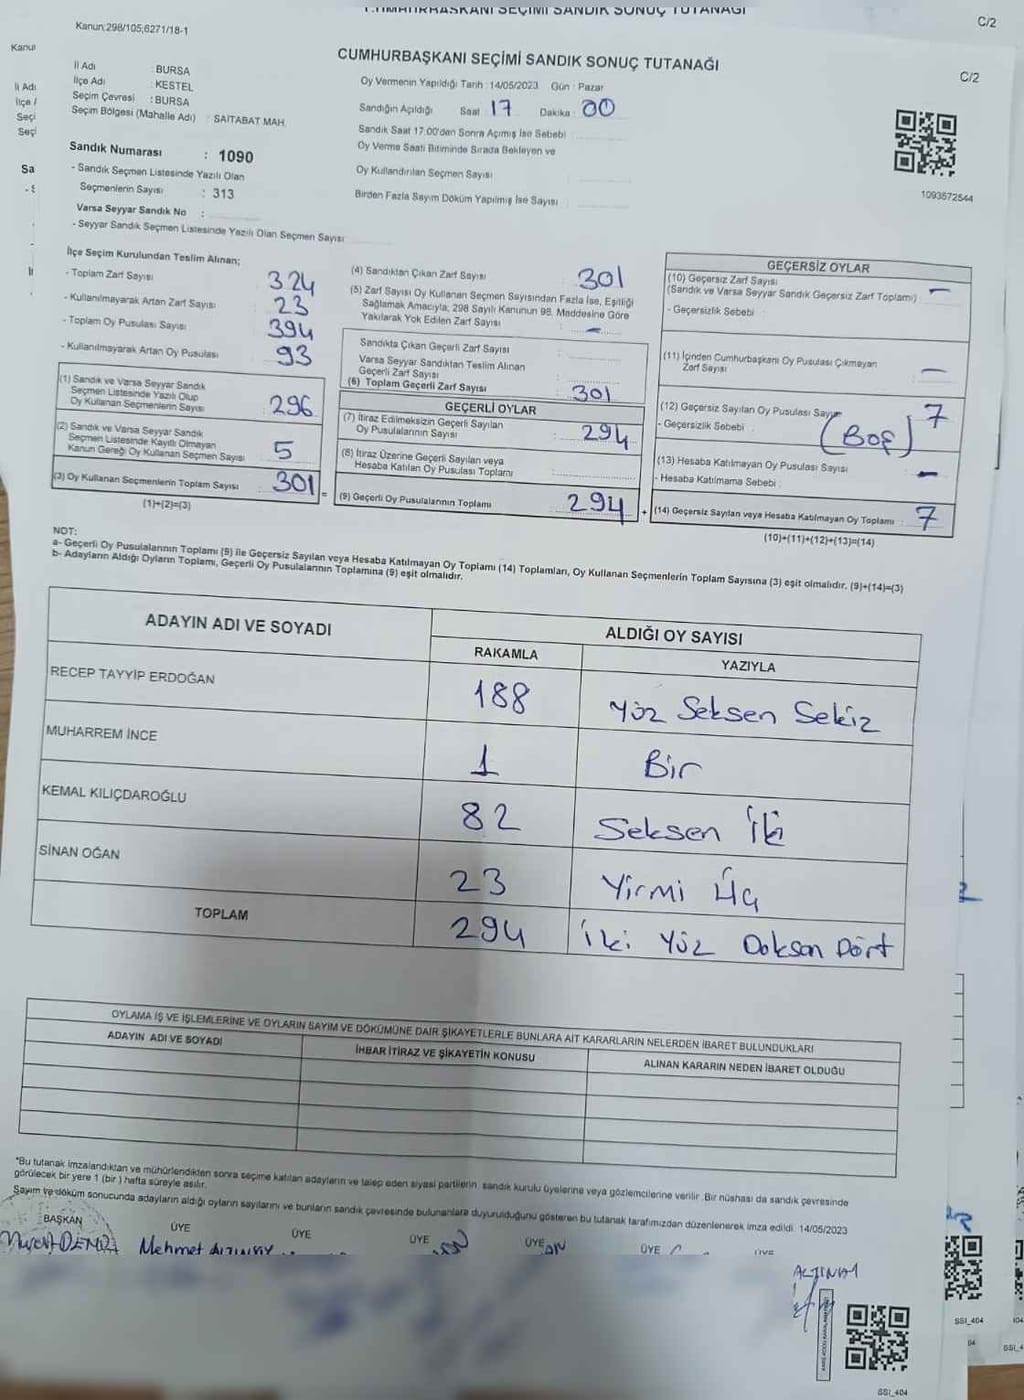 C/2
Kanun:298/105;6271/18-1
CUMHURBAŞKANI SEÇİMİ SANDIK SONUÇ TUTANAĞI
C/2
İl Adı : BURSA
İlçe Adı : KESTEL
Seçim Çevresi : BURSA
Seçim Bölgesi (Mahalle Adı) : SAİTABAT MAH.
Sandık Numarası : 1090
- Sandık Seçmen Listesinde Yazılı Olan
Seçmenlerin Sayısı : 313
Varsa Seyyar Sandık No :
- Seyyar Sandık Seçmen Listesinde Yazılı Olan Seçmen Sayısı
Oy Vermenin Yapıldığı Tarih : 14/05/2023 Gün : Pazar
Sandığın Açıldığı Saat 17 Dakika : 00
Sandık Saat 17:00'den Sonra Açımış İse Sebebi
Oy Verme Saati Bitiminde Sırada Bekleyen ve
Oy Kullandırılan Seçmen Sayısı
Birden Fazla Sayım Döküm Yapılmış İse Sayısı :
1093572544
İlçe Seçim Kurulundan Teslim Alınan;
- Toplam Zarf Sayısı 324
- Kullanılmayarak Artan Zarf Sayısı 23
- Toplam Oy Pusulası Sayısı 394
- Kullanılmayarak Artan Oy Pusulası 93
(1) Sandık ve Varsa Seyyar Sandık
Seçmen Listesinde Yazılı Olup
Oy Kullanan Seçmenlerin Sayısı 296
(2) Sandık ve Varsa Seyyar Sandık
Seçmen Listesinde Kayıtlı Olmayan
Kanun Gereği Oy Kullanan Seçmen Sayısı 5
(3) Oy Kullanan Seçmenlerin Toplam Sayısı 301 =
(1)+(2)=(3)
(4) Sandıktan Çıkan Zarf Sayısı 301
(5) Zarf Sayısı Oy Kullanan Seçmen Sayısından Fazla İse, Eşitliği
Sağlamak Amacıyla, 298 Sayılı Kanunun 98. Maddesine Göre
Yakılarak Yok Edilen Zarf Sayısı : –
Sandıkta Çıkan Geçerli Zarf Sayısı
Varsa Seyyar Sandıktan Teslim Alınan
Geçerli Zarf Sayısı
(6) Toplam Geçerli Zarf Sayısı 301
GEÇERLİ OYLAR
(7) İtiraz Edilmeksizin Geçerli Sayılan
Oy Pusulalarının Sayısı : 294
(8) İtiraz Üzerine Geçerli Sayılan veya
Hesaba Katılan Oy Pusulası Toplamı
(9) Geçerli Oy Pusulalarının Toplamı : 294 +
GEÇERSİZ OYLAR
(10) Geçersiz Zarf Sayısı
(Sandık ve Varsa Seyyar Sandık Geçersiz Zarf Toplamı) –
- Geçersizlik Sebebi :
(11) İçinden Cumhurbaşkanı Oy Pusulası Çıkmayan
Zarf Sayısı –
(12) Geçersiz Sayılan Oy Pusulası Sayısı 7
- Geçersizlik Sebebi : (Boş)
(13) Hesaba Katılmayan Oy Pusulası Sayısı –
- Hesaba Katılmama Sebebi :
(14) Geçersiz Sayılan veya Hesaba Katılmayan Oy Toplamı : 7
(10)+(11)+(12)+(13)=(14)
NOT:
a- Geçerli Oy Pusulalarının Toplamı (9) ile Geçersiz Sayılan veya Hesaba Katılmayan Oy Toplamı (14) Toplamları, Oy Kullanan Seçmenlerin Toplam Sayısına (3) eşit olmalıdır. (9)+(14)=(3)
b- Adayların Aldığı Oyların Toplamı, Geçerli Oy Pusulalarının Toplamına (9) eşit olmalıdır.
ADAYIN ADI VE SOYADI ALDIĞI OY SAYISI
RAKAMLA YAZIYLA
RECEP TAYYİP ERDOĞAN 188 Yüz Seksen Sekiz
MUHARREM İNCE 1 Bir
KEMAL KILIÇDAROĞLU 82 Seksen İki
SİNAN OĞAN 23 Yirmi Üç
TOPLAM 294 İki Yüz Doksan Dört
OYLAMA İŞ VE İŞLEMLERİNE VE OYLARIN SAYIM VE DÖKÜMÜNE DAİR ŞİKAYETLERLE BUNLARA AİT KARARLARIN NELERDEN İBARET BULUNDUKLARI
ADAYIN ADI VE SOYADI İHBAR İTİRAZ VE ŞİKAYETİN KONUSU ALINAN KARARIN NEDEN İBARET OLDUĞU
*Bu tutanak imzalandıktan ve mühürlendikten sonra seçime katılan adayların ve talep eden siyasi partilerin sandık kurulu üyelerine veya gözlemcilerine verilir. Bir nüshası da sandık çevresinde
görülecek bir yere 1 (bir) hafta süreyle asılır.
Sayım ve döküm sonucunda adayların aldığı oyların sayılarını ve bunların sandık çevresinde bulunanlara duyurulduğunu gösteren bu tutanak tarafımızdan düzenlenerek imza edildi. 14/05/2023
BAŞKAN ÜYE ÜYE ÜYE ÜYE ÜYE
Mehmet
SSI_404
SSI_404